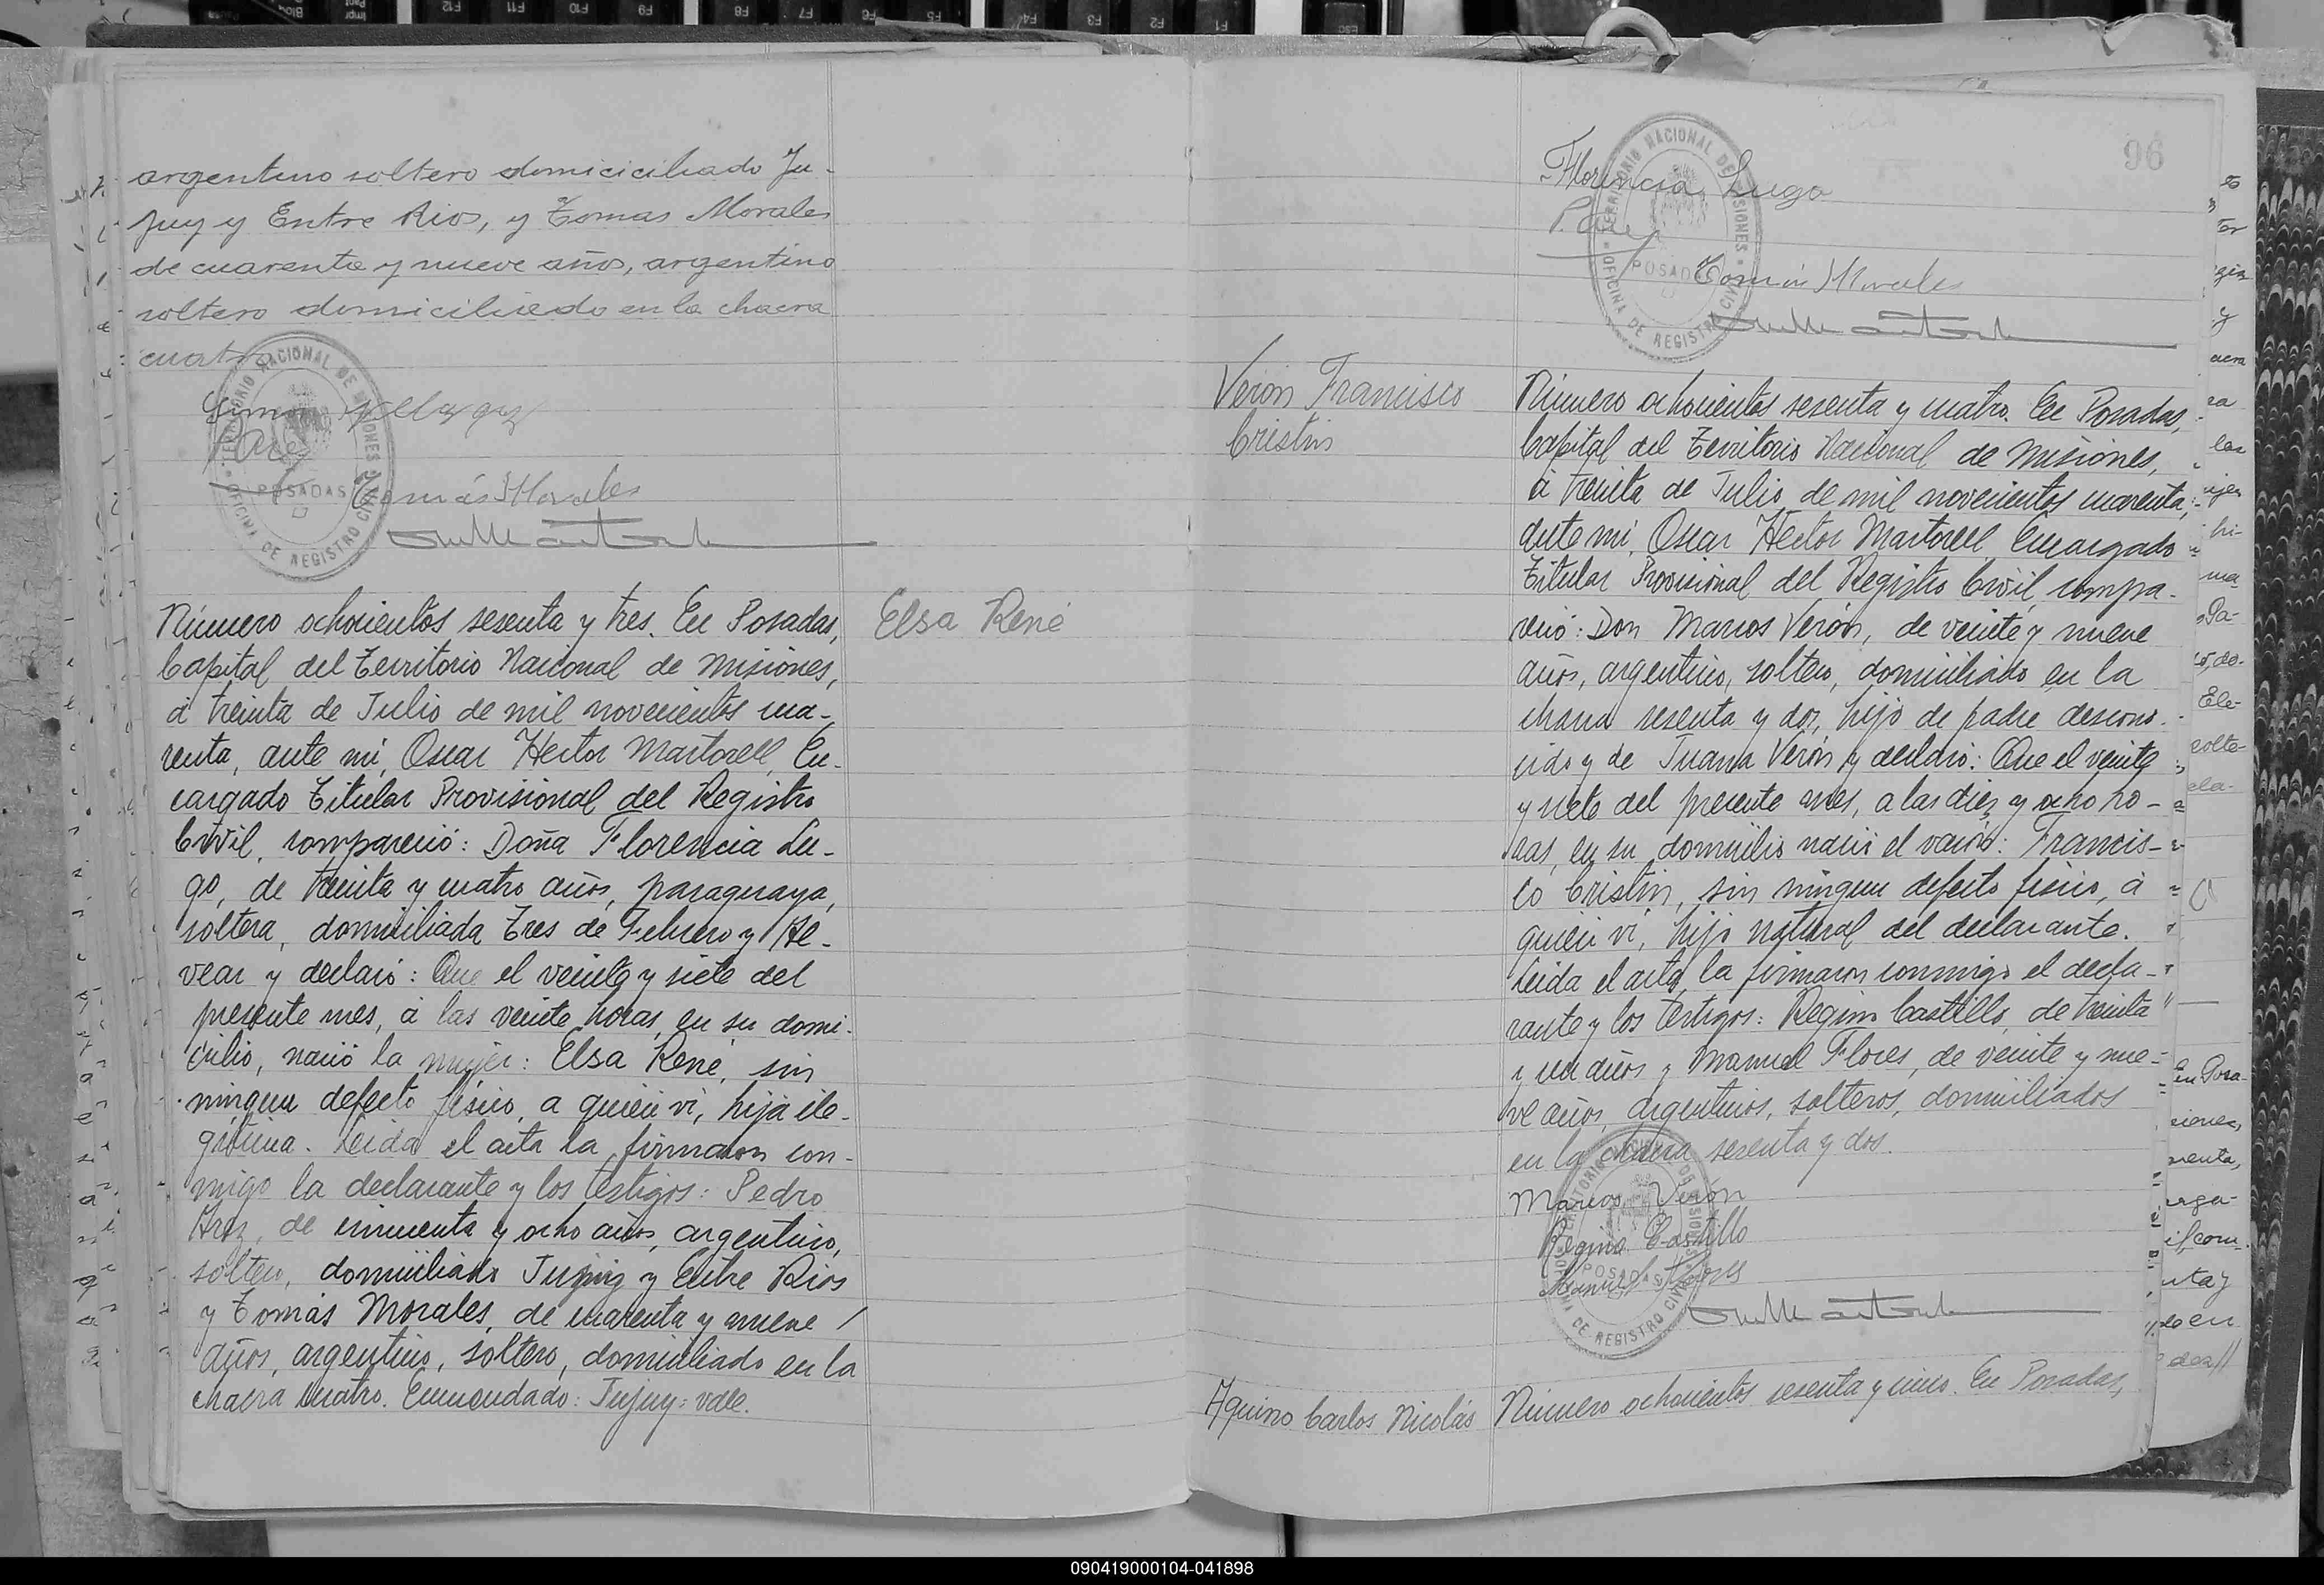 argentino soltero domiciciliado Ju-
juy y Entre Rios, y Tomas Morales
de cuarenta y nueve años, argentino
soltero domiciliado en la chacra
cuatro
TERRITORIO NACIONAL DE MISIONES
POSADAS
OFICINA DE REGISTRO CIVIL
Tomás Morales
Número ochocientos sesenta y tres. En Posadas,
Capital del Territorio Nacional de Misiones,
á treinta de Julio de mil novecientos cua-
renta, ante mi, Oscar Hector Martorell, En-
cargado Titular Provisional del Registro
Civil, compareció: Doña Florencia Lu-
go, de treinta y cuatro años, paraguaya,
soltera, domiciliada Tres de Febrero y Al-
vear y declaró: Que el veinte y siete del
presente mes, á las veinte horas, en su domi-
cilio, nació la mujer: Elsa René, sin
ningun defecto físico, a quien vi, hija ile-
gítima. Leida el acta la firmaron con-
migo la declarante y los testigos: Pedro
de cincuenta y ocho años, argentino,
soltero, domiciliado Jujuy y Entre Rios
y Tomás Morales, de cuarenta y nueve /
años, argentino, soltero, domiciliado en la
chacra cuatro. Enmendado: Jujuy: vale.
Elsa René
96
Florencia Lugo
TERRITORIO NACIONAL DE MISIONES
POSADAS
OFICINA DE REGISTRO CIVIL
Tomás Morales
Verón Francisco
Cristin
Número ochocientos sesenta y cuatro. En Posadas,
Capital del Territorio Nacional de Misiones,
á treinta de Julio de mil novecientos cuarenta,
ante mi, Oscar Hector Martorell, Encargado
Titular Provisional del Registro Civil, compa-
reció: Don Marcos Verón, de veinte y nueve
años, argentino, soltero, domiciliado en la
chacra sesenta y dos, hijo de padre descono-
cido y de Juana Verón y declaró: Que el veinte
y siete del presente mes, a las diez y ocho ho-
ras, en su domicilio nació el varón: Francis-
co Cristin, sin ningun defecto físico, á
quien vi, hijo natural del declarante.
Leida el acta, la firmaron conmigo el decla-
rante y los testigos: Regino Castillo, de treinta
y un años y Manuel Flores, de veinte y nue-
ve años, argentinos, solteros, domiciliados
en la chacra sesenta y dos.
Marcos Verón
Regino Castillo
Manuel Flores
TERRITORIO NACIONAL DE MISIONES
POSADAS
OFICINA DE REGISTRO CIVIL
Aquino Carlos Nicolás
Número ochocientos sesenta y cinco. En Posadas,
090419000104-041898